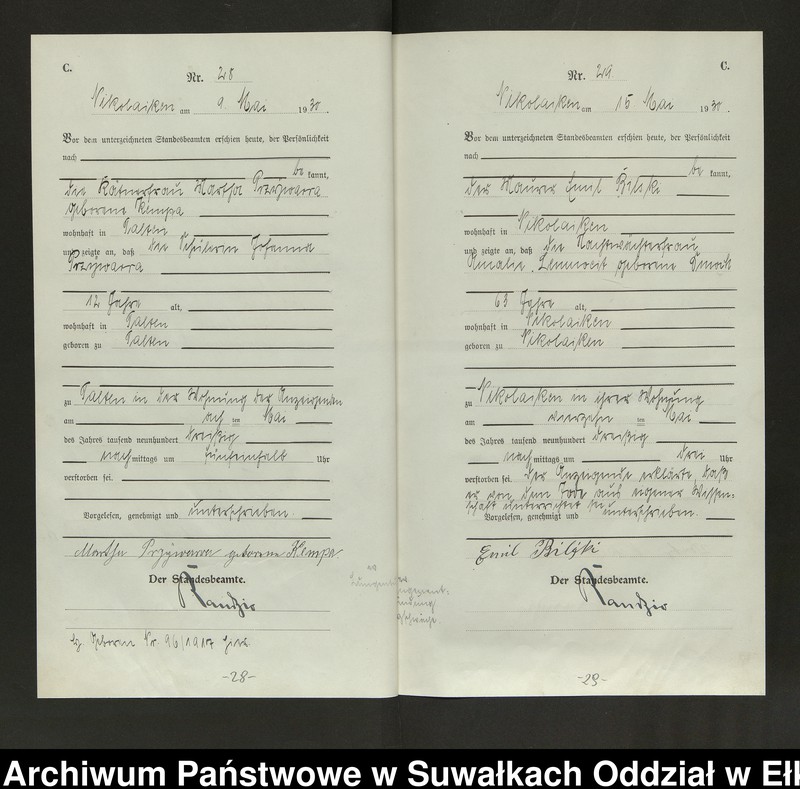 C.
Nr. 28
Nikolaiken am 9 Mai 1930.
Vor dem unterzeichneten Standesbeamten erschien heute, der Persönlichkeit
nach
be kannt,
die Kätnerfrau Martha Przywarra
geborene Kempa
wohnhaft in Salten
und zeigte an, daß die Schülerin Johanna
Przywarra
12 Jahre alt,
wohnhaft in Salten
geboren zu Salten
zu Salten in der Wohnung der Anzeigenden
am acht im Mai
des Jahres tausend neunhundert dreißig
nach mittags um fünfeinhalb Uhr
verstorben sei.
Vorgelesen, genehmigt und unterschrieben.
Martha Przywarra geborene Kempa.
Der Standesbeamte.
Randzio
Geboren Nr. 96/1917 hier.
-28-
C.
Nr. 29
Nikolaiken am 15 Mai 1930.
Vor dem unterzeichneten Standesbeamten erschien heute, der Persönlichkeit
nach
be kannt,
der Maurer Emil Bilski
wohnhaft in Nikolaiken
und zeigte an, daß die Nachtwächterfrau
Amalie geborene
63 Jahre alt,
wohnhaft in Nikolaiken
geboren zu Nikolaiken
zu Nikolaiken in ihrer Wohnung
am vierzehn im Mai
des Jahres tausend neunhundert dreißig
nach mittags um drei Uhr
verstorben sei. Der Anzeigende erklärte, daß
er von dem Tode aus eigener Wissen-
schaft unterrichtet sei
Vorgelesen, genehmigt und unterschrieben.
Emil Bilski
Der Standesbeamte.
Randzio
-29-
Archiwum Państwowe w Suwałkach Oddział w Eł